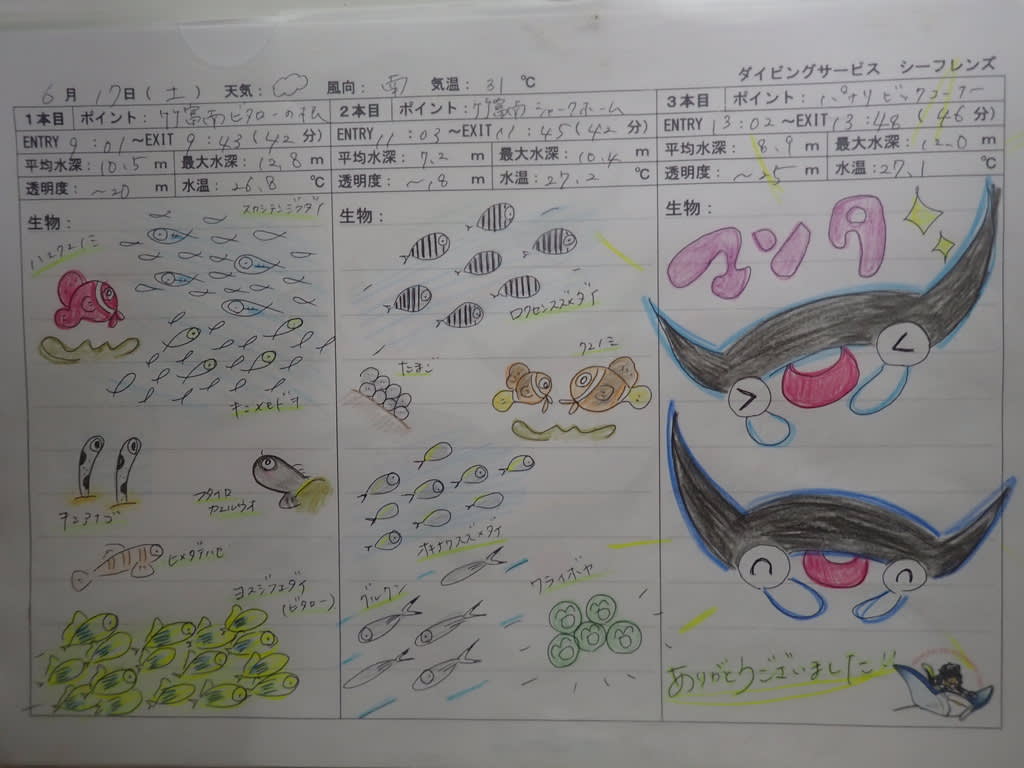 ダイビングサービス シーフレンズ
6月 17日(土) 天気: 風向: 南 気温: 31 ℃
1本目 ポイント: 竹富南ビタローの根
ENTRY 9:01〜EXIT 9:43(42分)
平均水深: 10.5 m 最大水深: 12.8 m
透明度: 〜20 m 水温: 26.8 ℃
生物:
スカシテンジクダイ
ハマクマノミ
キンメモドキ
チンアナゴ
フタイロカエルウオ
ヒメダテハゼ
ヨスジフエダイ
(ビタロー)
2本目 ポイント: 竹富南シャークホーム
ENTRY 11:03〜EXIT 11:45(42分)
平均水深: 7.2 m 最大水深: 10.4 m
透明度: 〜18 m 水温: 27.2 ℃
生物:
ロクセンスズメダイ
たまご
クマノミ
オキナワスズメダイ
グルクン
ワライボヤ
3本目 ポイント: パナリビックコーナー
ENTRY 13:02〜EXIT 13:48(46分)
平均水深: 8.9 m 最大水深: 12.0 m
透明度: 〜25 m 水温: 27.1 ℃
生物:
マンタ
ありがとうございました!!